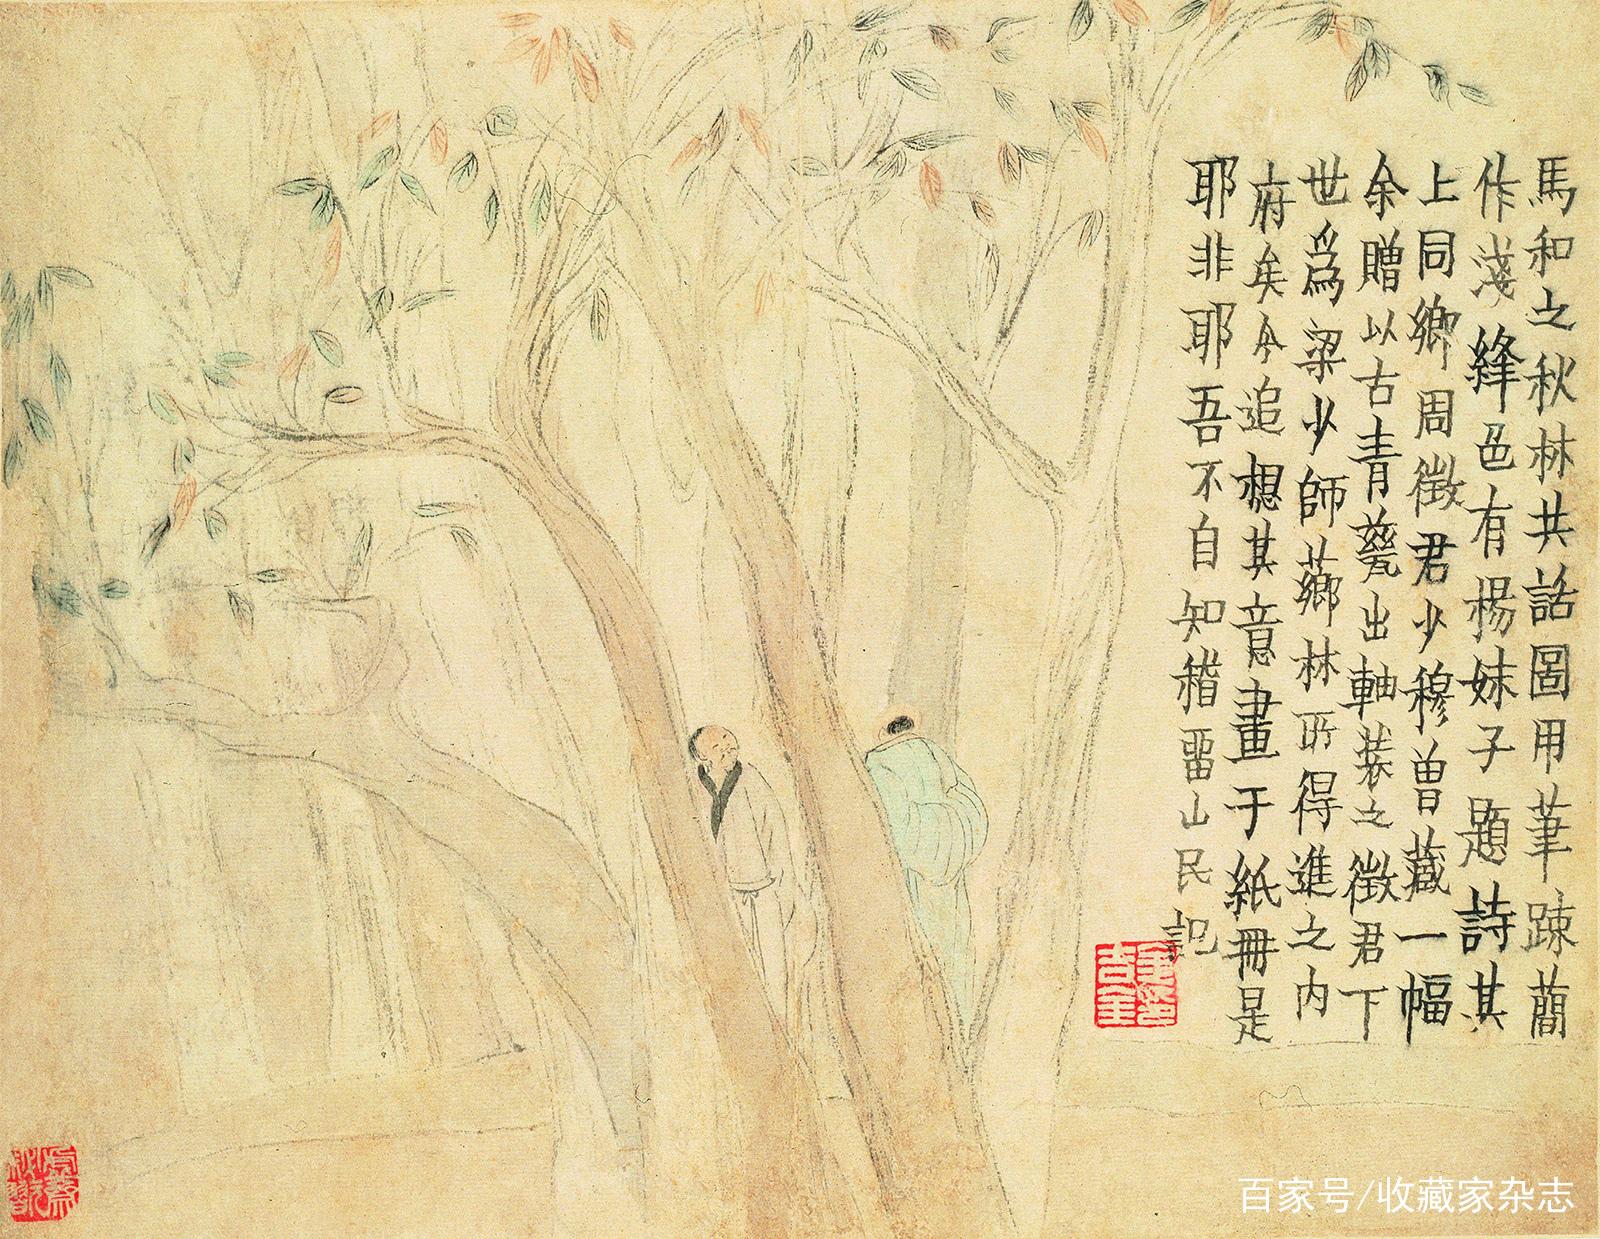 馬和之秋林共話圖用筆踈蕳
作淺絳色有楊妹子題詩其
上同鄉周徵君少穆曾藏一幅
余贈以古青甆出軸裝之徵君下
世爲梁少師薌林所得進之内
府矣今追想其意畫于紙冊是
耶非耶吾不自知稽畱山民記
百家号/收藏家杂志